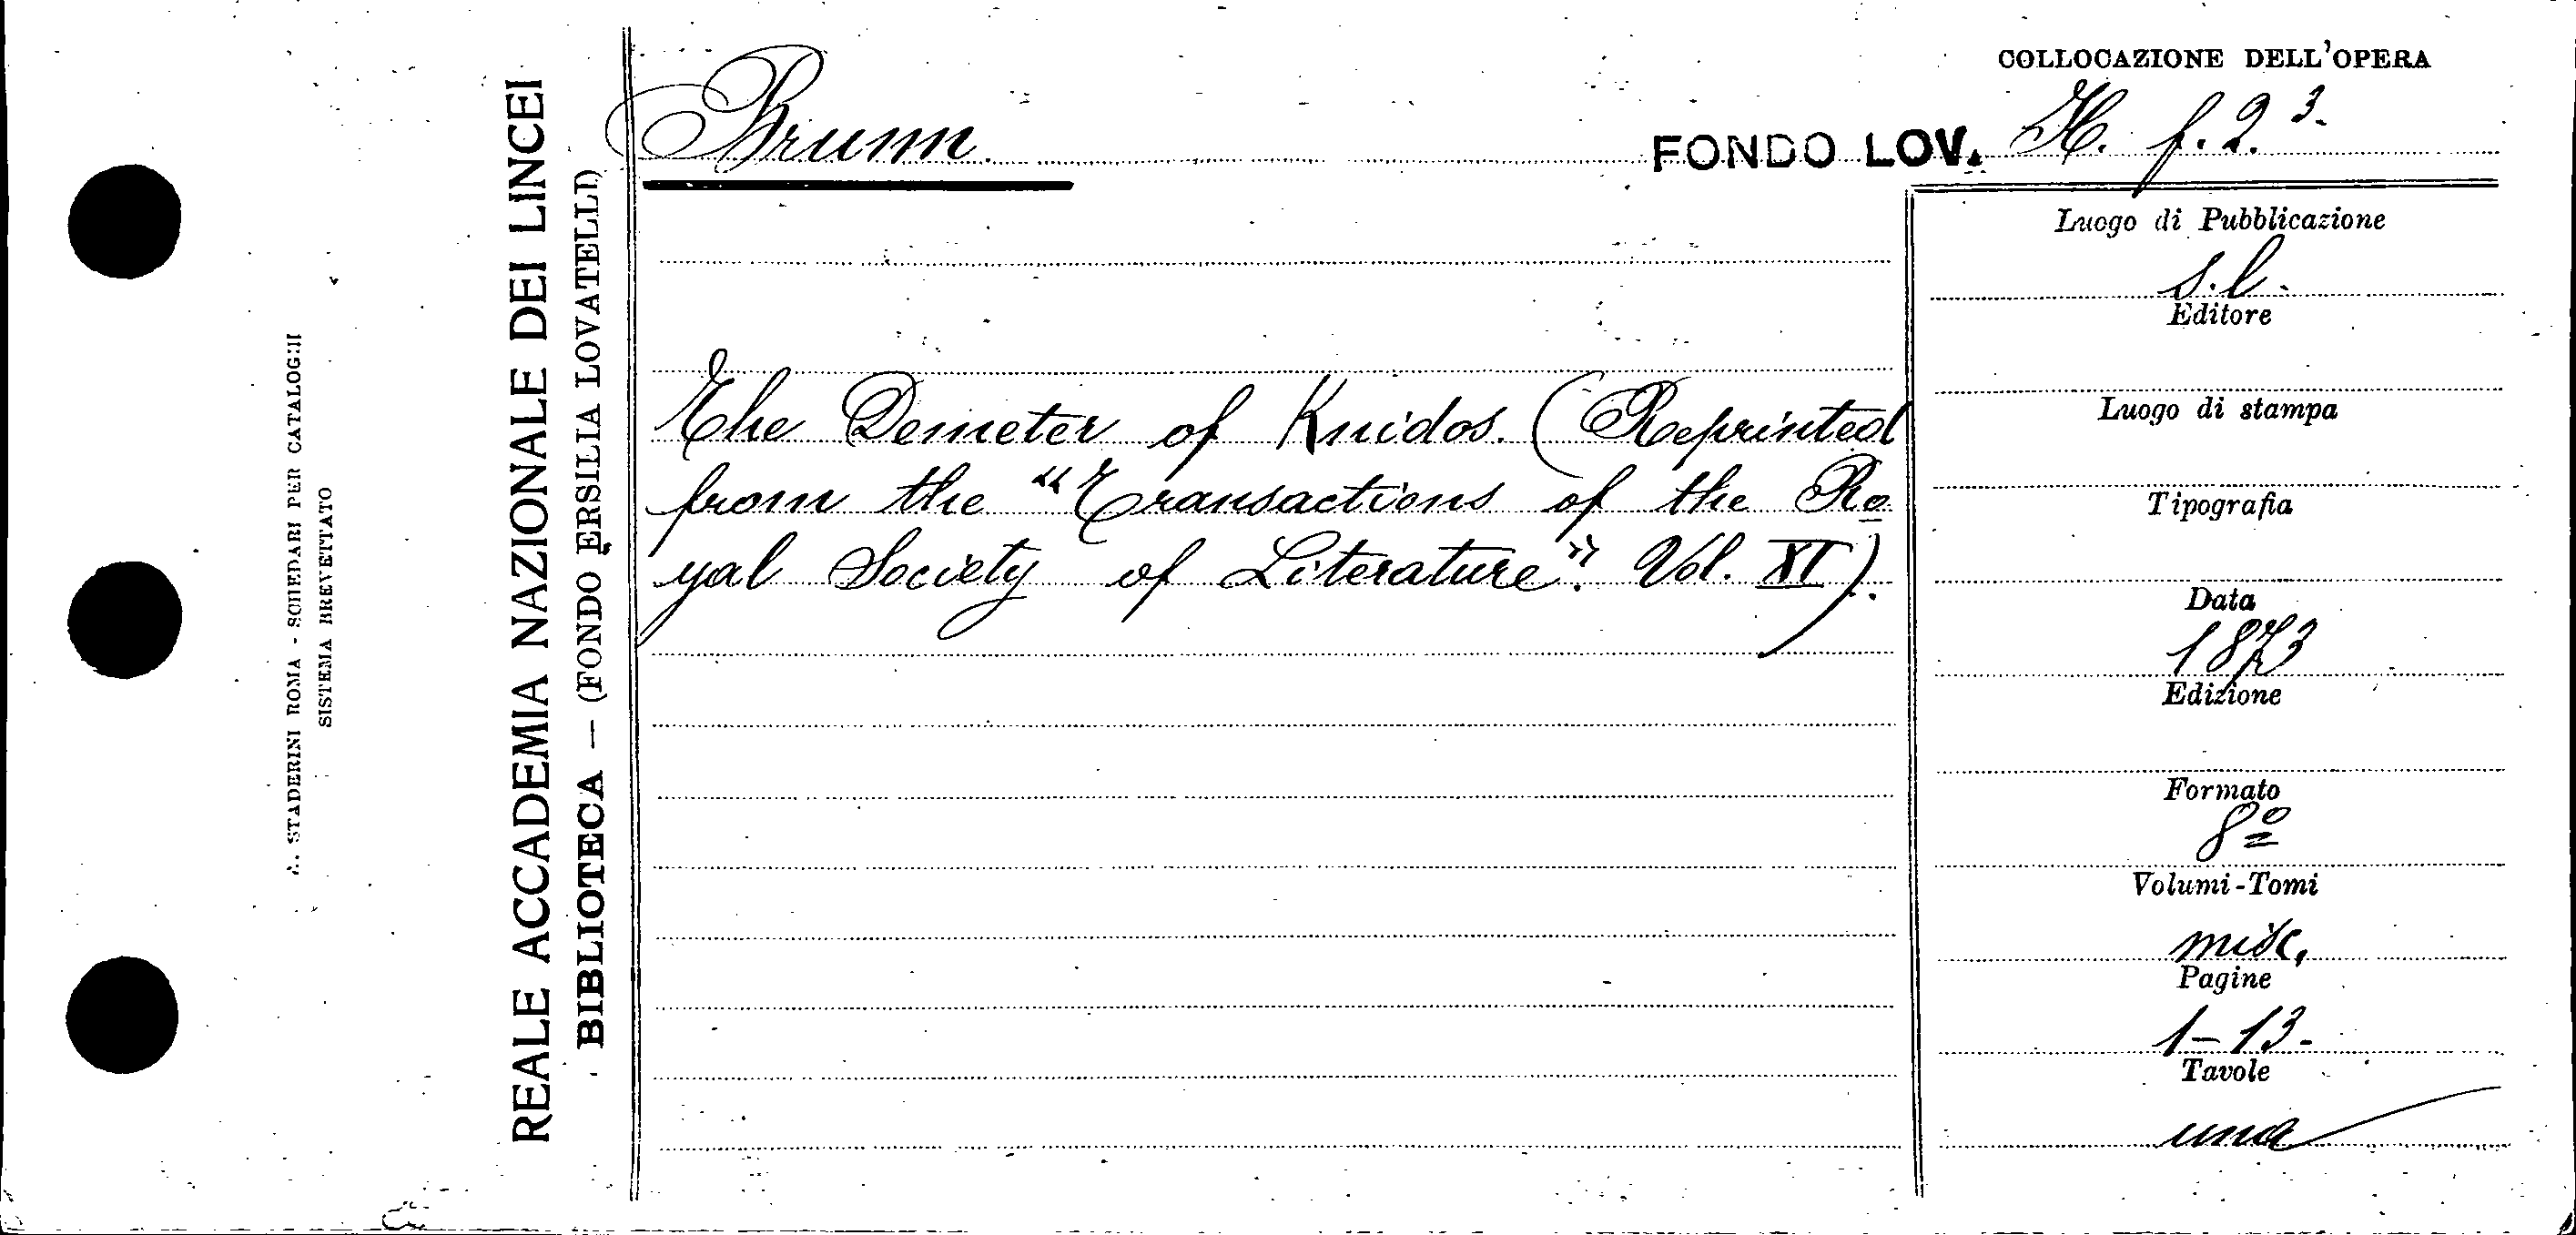 A. STADERINI ROMA - SCHEDARI PER CATALOGHI
SISTEMA BREVETTATO
REALE ACCADEMIA NAZIONALE DEI LINCEI
BIBLIOTECA — (FONDO ERSILIA LOVATELLI)
Brunn
COLLOCAZIONE DELL'OPERA
FONDO LOV. H. f. 2. 3.
The Demeter of Knidos. (Reprinted
from the "Transactions of the Ro
yal Society of Literature". Vol. XI).
Luogo di Pubblicazione
s.l.
Editore
Luogo di stampa
Tipografia
Data
1873
Edizione
Formato
8º
Volumi-Tomi
misc.
Pagine
1-13-
Tavole
una